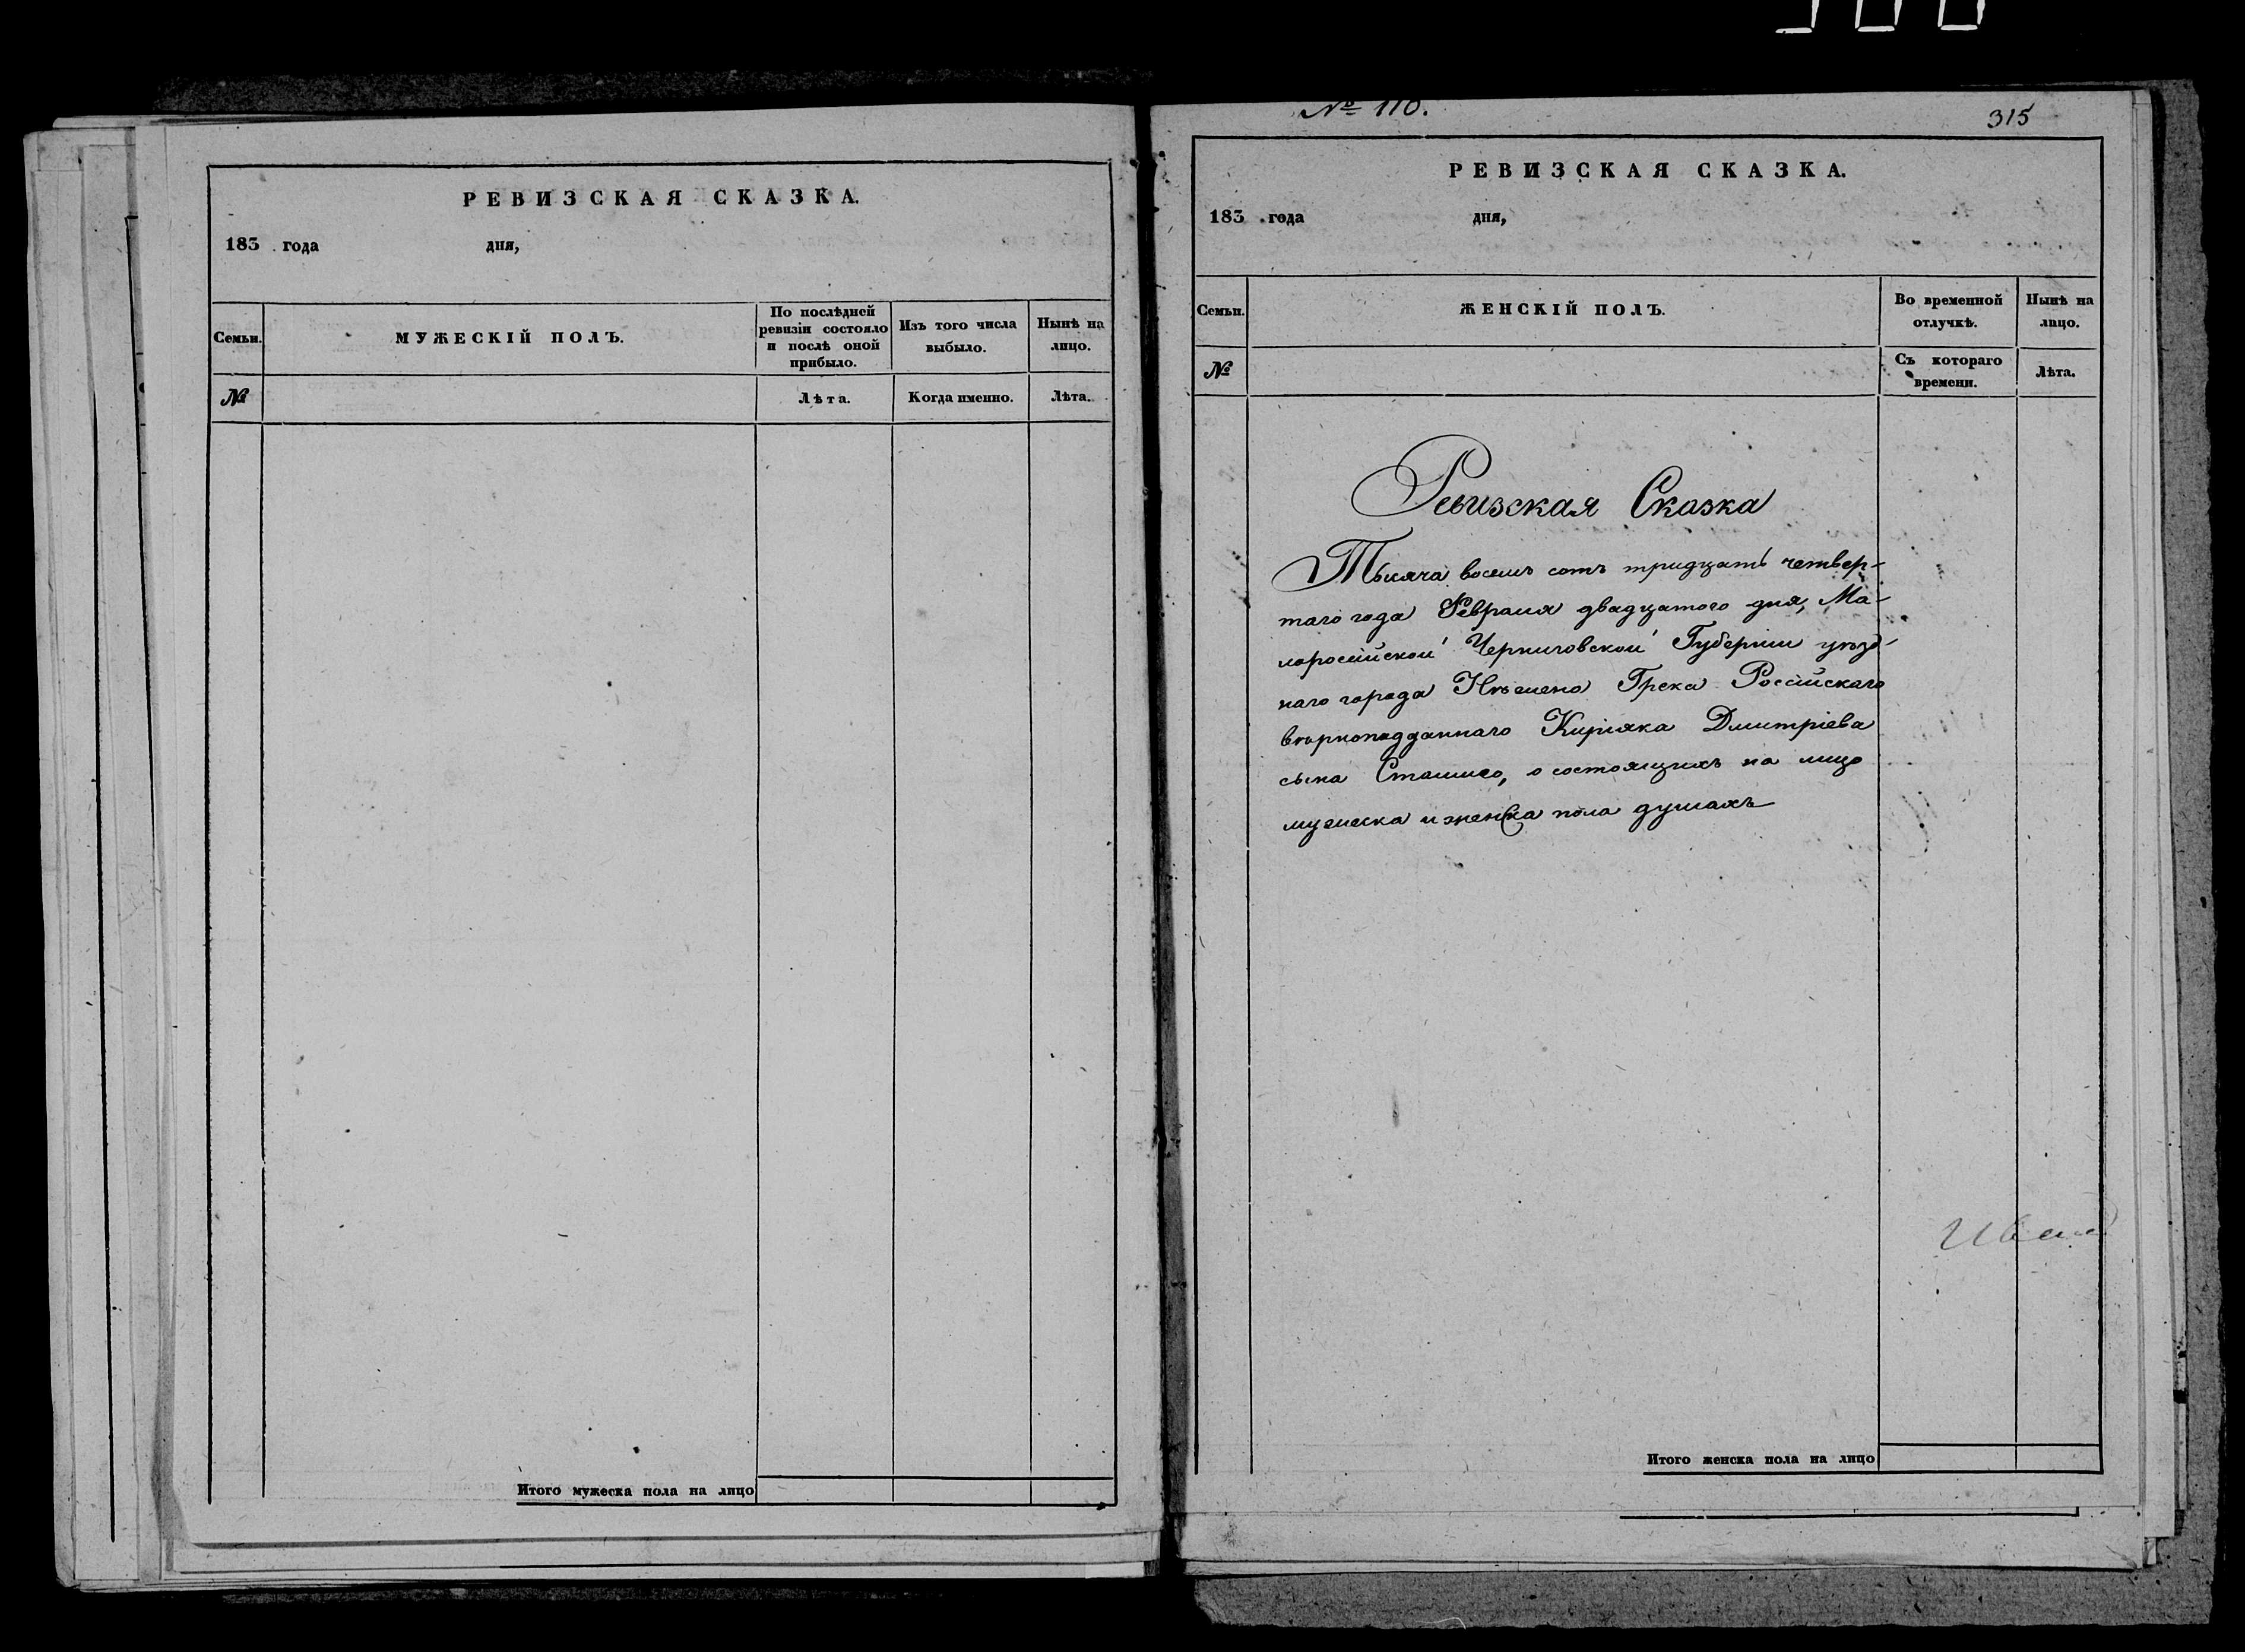 РЕВИЗСКАЯ СКАЗКА.
183 года дня,
Семьи.
МУЖЕСКІЙ ПОЛЪ.
По послѣдней
ревизіи состояло
и послѣ оной
прибыло.
Изъ того числа
выбыло.
Нынѣ на
лицо.
№
Лѣта.
Когда именно.
Лѣта.
Итого мужеска пола на лицо
№ 110.
315
РЕВИЗСКАЯ СКАЗКА.
183 года дня,
Семьи.
ЖЕНСКІЙ ПОЛЪ.
Во временной
отлучкѣ.
Нынѣ на
лицо.
№
Съ котораго
времени.
Лѣта.
Ревизская Сказка
Тысяча восемь сотъ тридцать четвер-
таго года Февраля двадцатого дня, Ма-
лоросійской Черниговской Губерніи уѣзд-
наго города Нѣжена Грека Російскаго
вѣрноподданнаго Киріяка Дмитріева
сына Сташисо, о состоящихъ на лицо
мужеска и женска пола душахъ
Итого женска пола на лицо